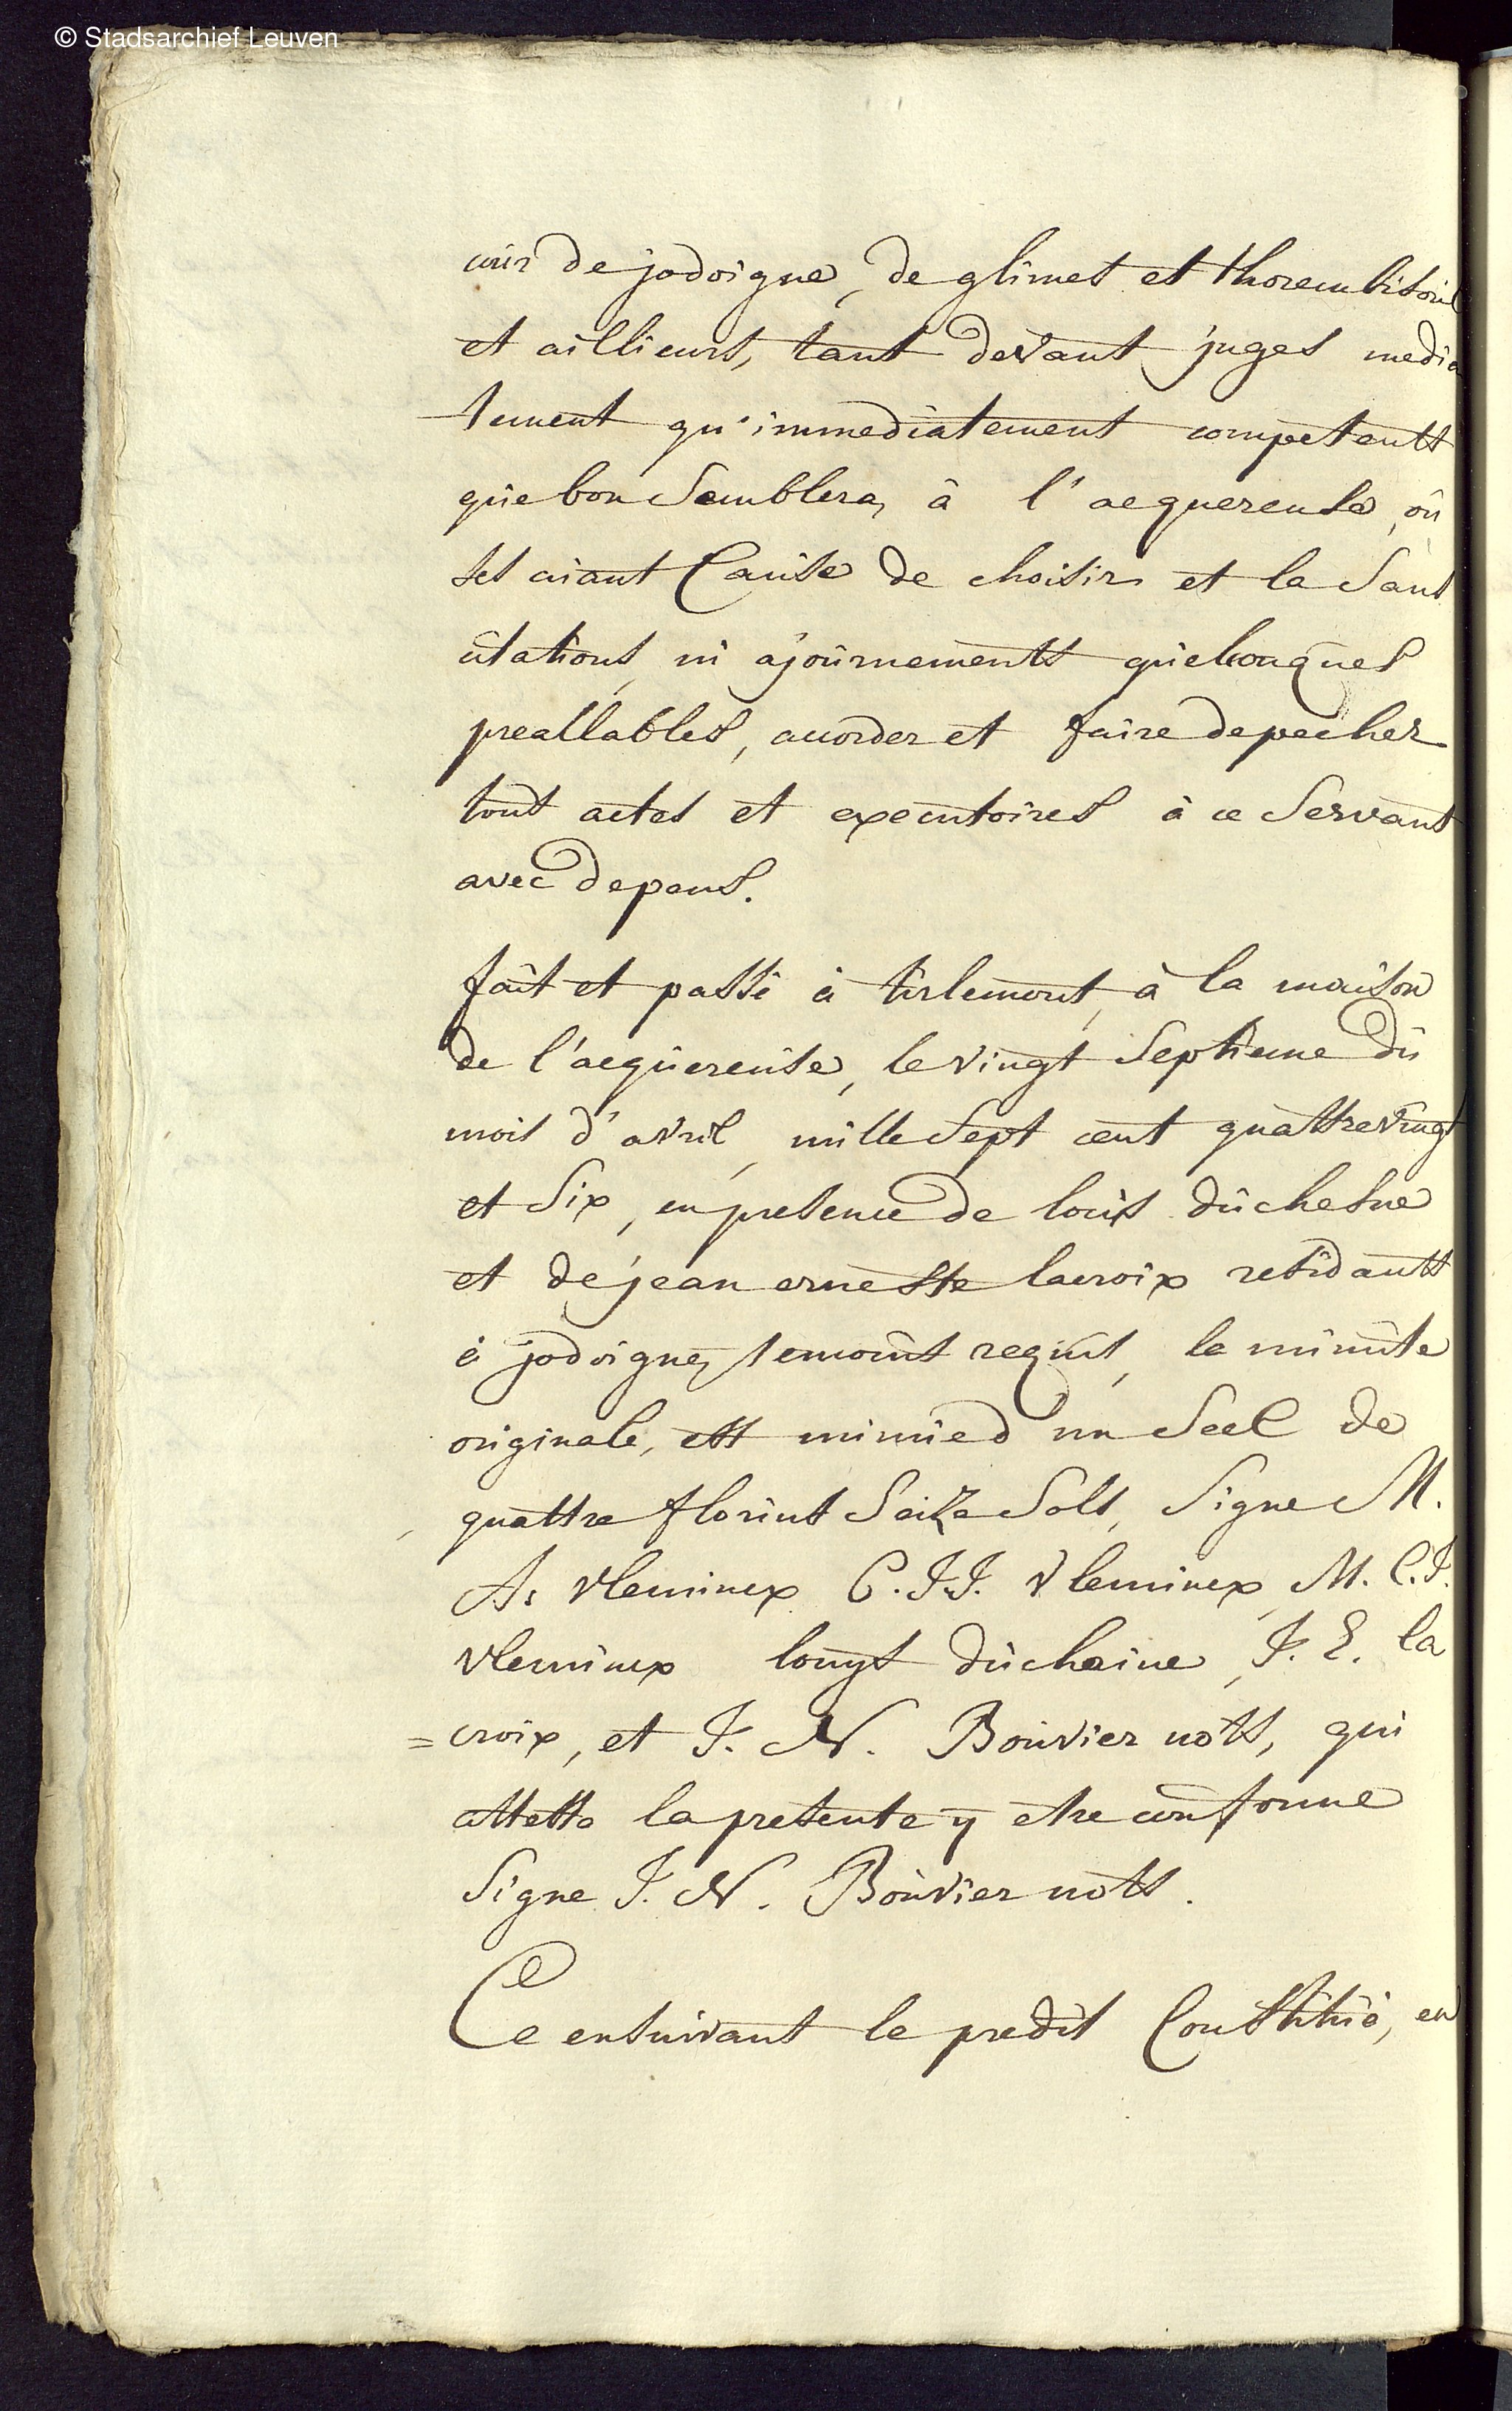 © Stadsarchief Leuven
cour de jodoigne, de glimes et thorembisoul
et aillieurs, tant devant juges media
tement qu'immediatement competents
que bon Semblera, à l'aequereuse, où
ses aiant Cause de choisir et la Sans
citations, ni ajournements quelconques
preallables, accorder et faire depecher
tout actes et executoires à ce Servant
avec depens.
fait et passé à tirlemont, à la maison
de l'aequereuse, le vingt Septieme du
mois d'avril, mille Sept cent quattrevingt
et Six, en presence de louis duchesne
et de jean erneste lacroix residants
à jodoigne, temoins requis, la minute
originale, est munied un Seel de
quattre florins Seize Sols, Signe M.
A: Vleminex C. J. J. Vleminex, M. C. J.
Vleminex louys duchaine, J. E. la
=croix, et J. N. Bouvier nots, qui
atteste la presente y etre conforme
Signe J. N. Bouvier nots.
Ce ensuivant le predit Constitué, en